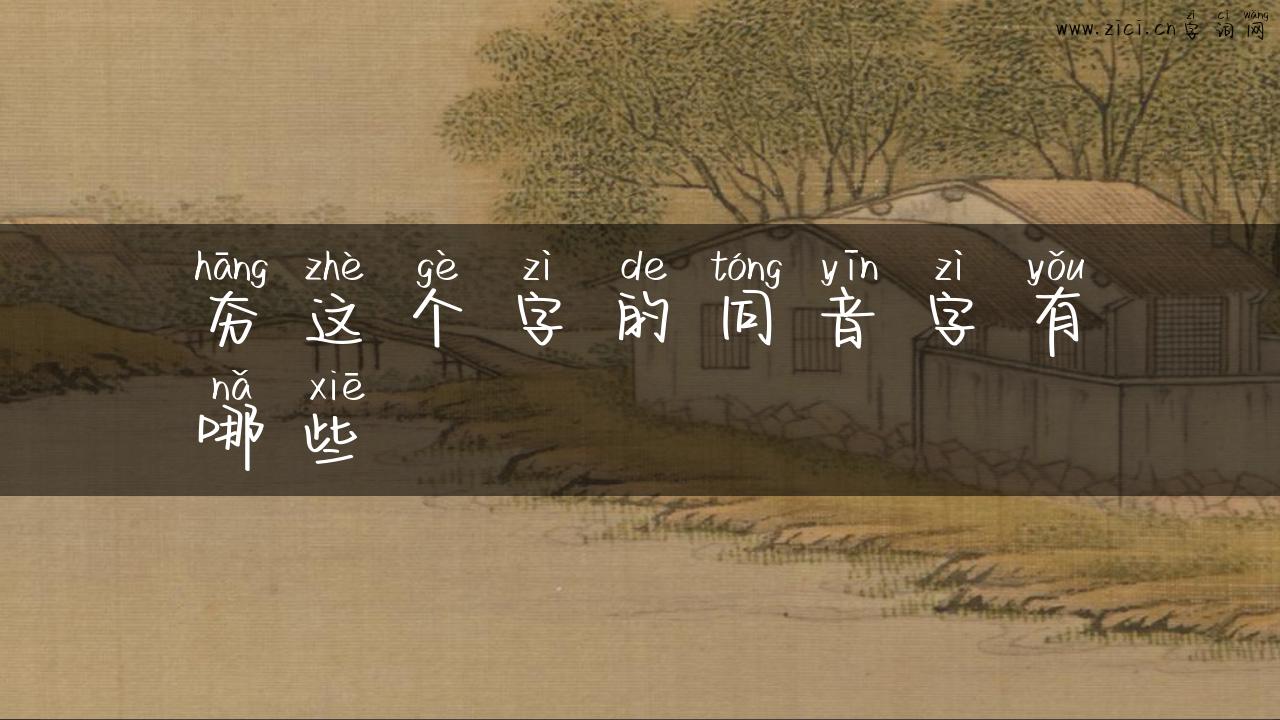 zì cí wǎng
www.zici.cn 字词网
hāng zhè gè zì de tóng yīn zì yǒu
夯这个字的同音字有
nǎ xiē
哪些